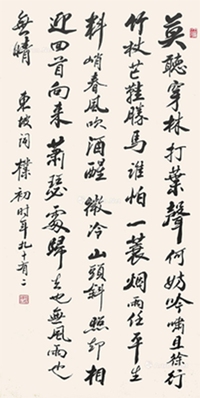 莫聽穿林打葉聲何妨吟嘯且徐行
竹杖芒鞋勝馬誰怕一蓑烟雨任平生
料峭春風吹酒醒微冷山頭斜照却相
迎回首向來蕭瑟處歸去也無風雨也
無晴 東坡詞 樸初时年九十有二